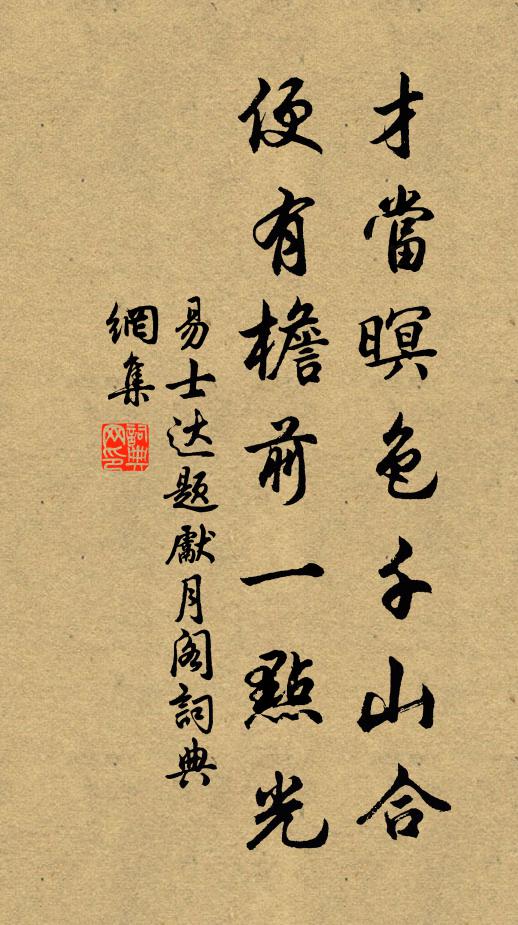 才當暝色千山合
便有檐前一點光
易士达题獻月阁詞典
網集
詞典網印